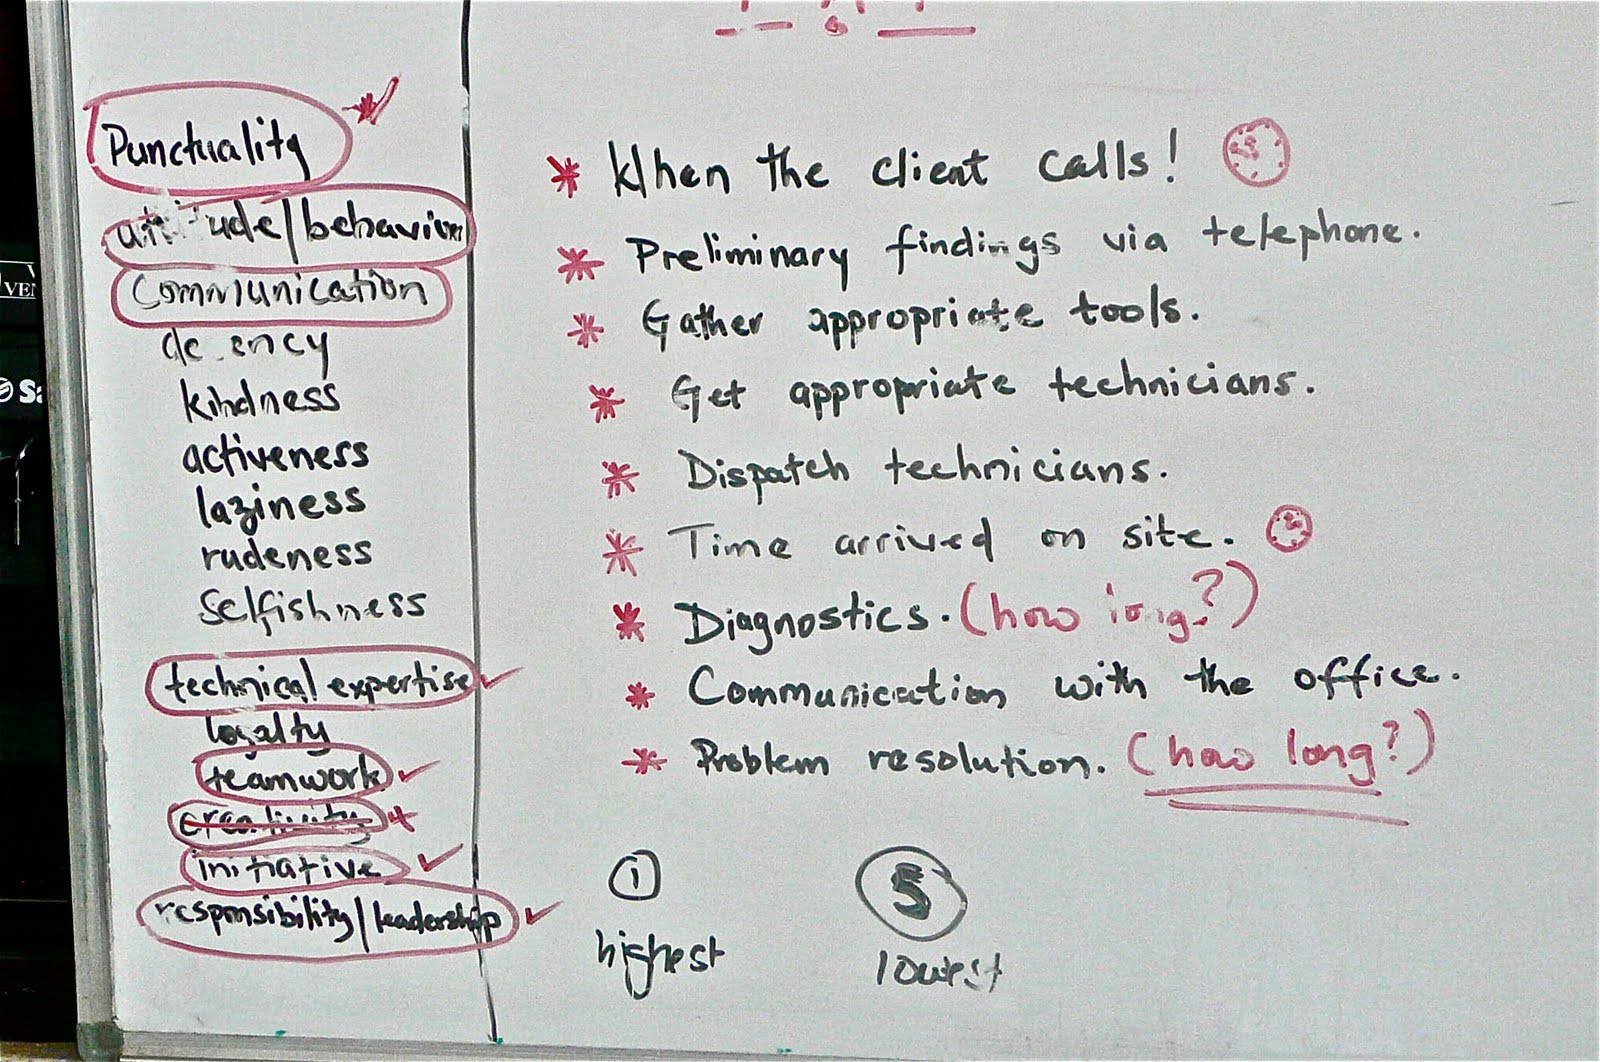 Punctuality
attitude/behavior
communication
decency
kindness
activeness
laziness
rudeness
Selfishness
technical expertise
loyalty
teamwork
creativity
initiative
responsibility/leadership
* When the client calls!
* Preliminary findings via telephone.
* Gather appropriate tools.
* Get appropriate technicians.
* Dispatch technicians.
* Time arrived on site.
* Diagnostics. (how long?)
* Communication with the office.
* Problem resolution. (how long?)
1 5
highest lowest
VEN